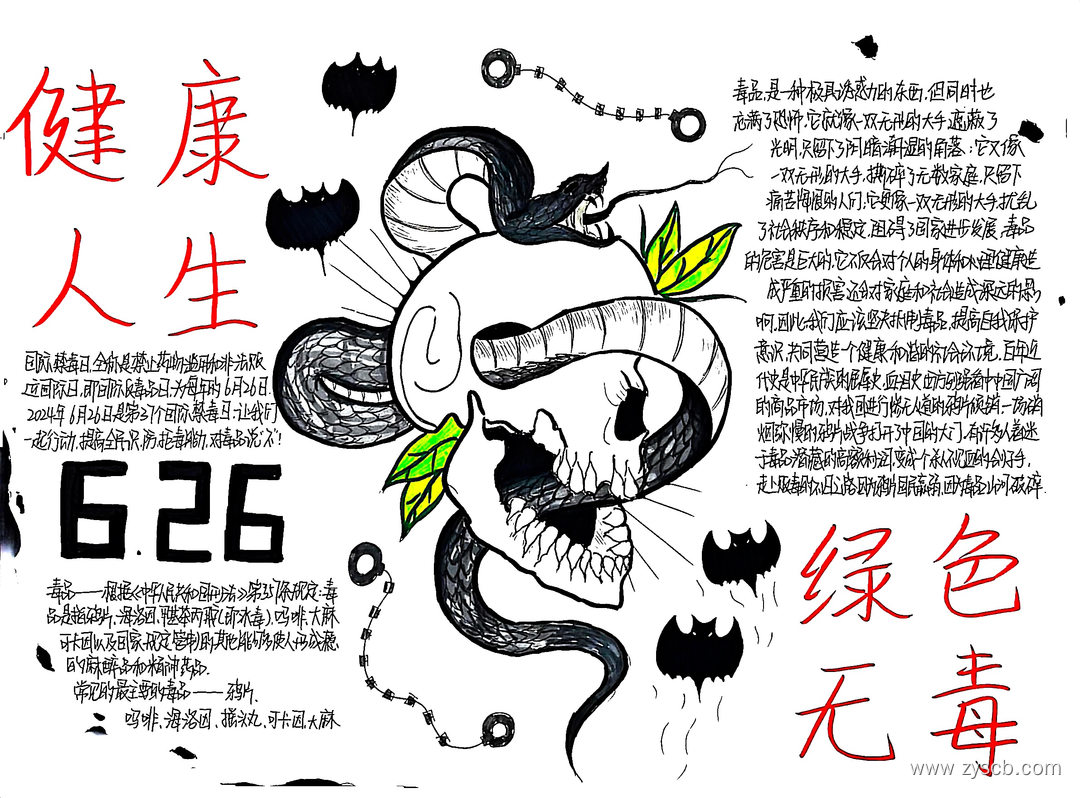 健康
人生
国际禁毒日,全称是禁止药物滥用和非法贩
运国际日,即国际反毒品日,为每年的6月26日.
2024年6月26日是第37个国际禁毒日.让我们
一起行动,提高全民识防拒毒能力,对毒品说"不"!
6.26
毒品——根据《中华人民共和国刑法》第357条规定:毒
品是指鸦片、海洛因、甲基苯丙胺(即冰毒)、吗啡、大麻
可卡因以及国家规定管制的其他能够使人形成瘾
的麻醉品和精神药品.
常见的最主要的毒品——鸦片.
吗啡、海洛因、摇头丸、可卡因、大麻
毒品,是一种极具诱惑力的东西,但同时也
充满了恐怖.它就像一双无形的大手,遮蔽了
光明,只留下了阴暗潮湿的角落;它又像
一双无形的大手,撕碎了无数家庭,只留下
痛苦悔恨的人们;它更像一双无形的大手,扰乱
了社会秩序和稳定,阻碍了国家进步发展.毒品
的危害是巨大的,它不仅会对个人的身体和心理健康造
成严重的损害,还会对家庭和社会造成深远的影
响.因此,我们应该坚决抵制毒品,提高自我保护
意识,共同营造一个健康和谐的社会环境.百年近
代史是中华民族的屈辱史,
的商品市场,对我国进行惨无人道的鸦片倾销,一场硝
烟弥漫的鸦片战争打开了中国的大门.有许多人着迷
于毒品,
走上吸毒的不归路.因为鸦片,国民 因为毒品,山河破碎.
绿色
无毒
www.zyscb.com